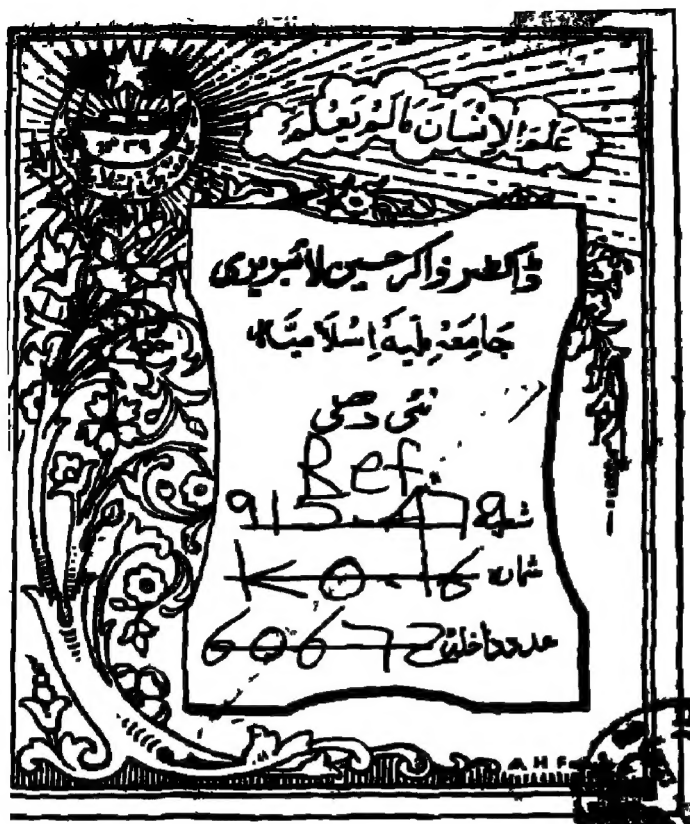 عَلَّمَ الْاِنْسَانَ مَا لَمْ يَعْلَمْ
ڈاکٹر ذاکر حسین لائبریری
جَامِعَہ مِلّیہ اِسْلَامیَّہ
نئی دھلی
Ref.
915.479
شمارہ KO.16
عدد داخلہ 60672
AHF